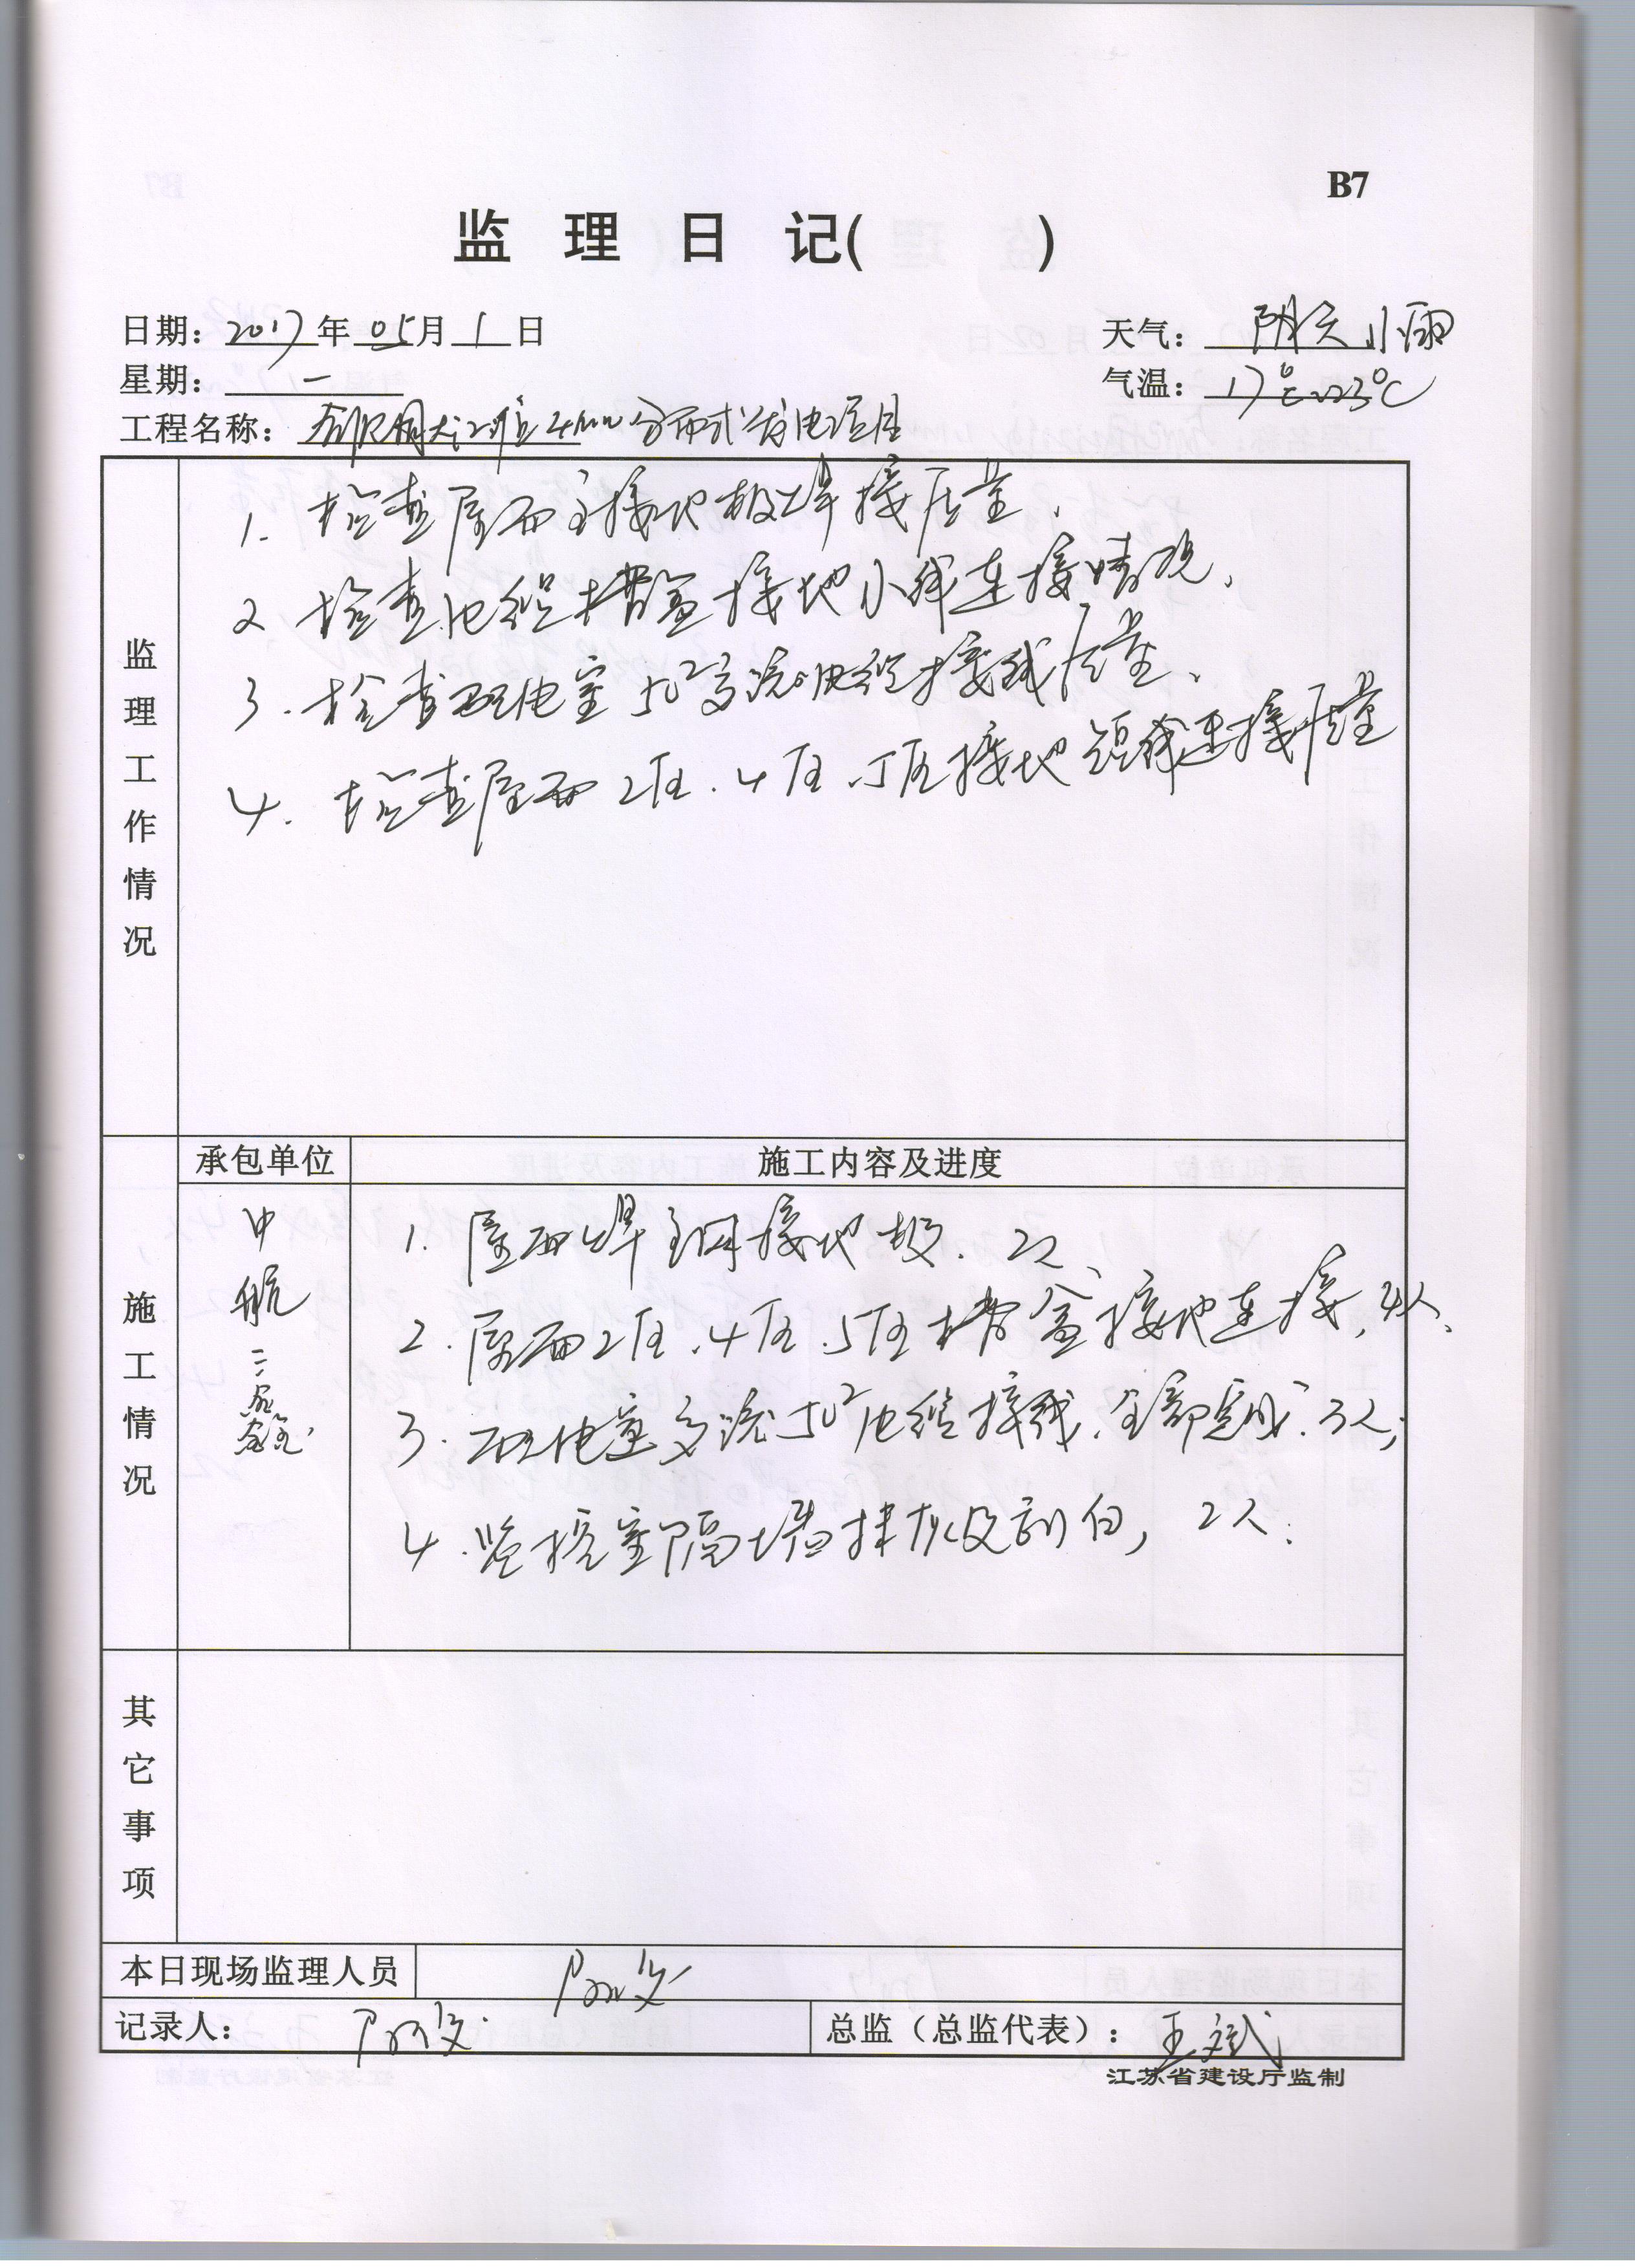 B7
监 理 日 记( )
日期: 2017 年 05 月 1 日
天气: 阴天小雨
星期: 一
气温: 17℃~23℃
工程名称: 4MW分布式发电项目
监理工作情况
1. 检查屋面主接地极焊接质量.
2 检查电缆槽盒接地小线连接情况.
3. 检查配电室50²交流电缆接线质量.
4. 检查屋面2区.4区.5区接地短线连接质量
承包单位
施工内容及进度
施工情况
中航三鑫
1. 屋面焊主网接地极. 2人、
2. 屋面2区.4区.5区槽盒接地连接, 4人、
3. 配电室交流50²电缆接线. 全部完成. 3人;
4. 监控室隔墙抹灰及刮白, 2人.
其它事项
本日现场监理人员
记录人:
总监(总监代表): 王斌
江苏省建设厅监制